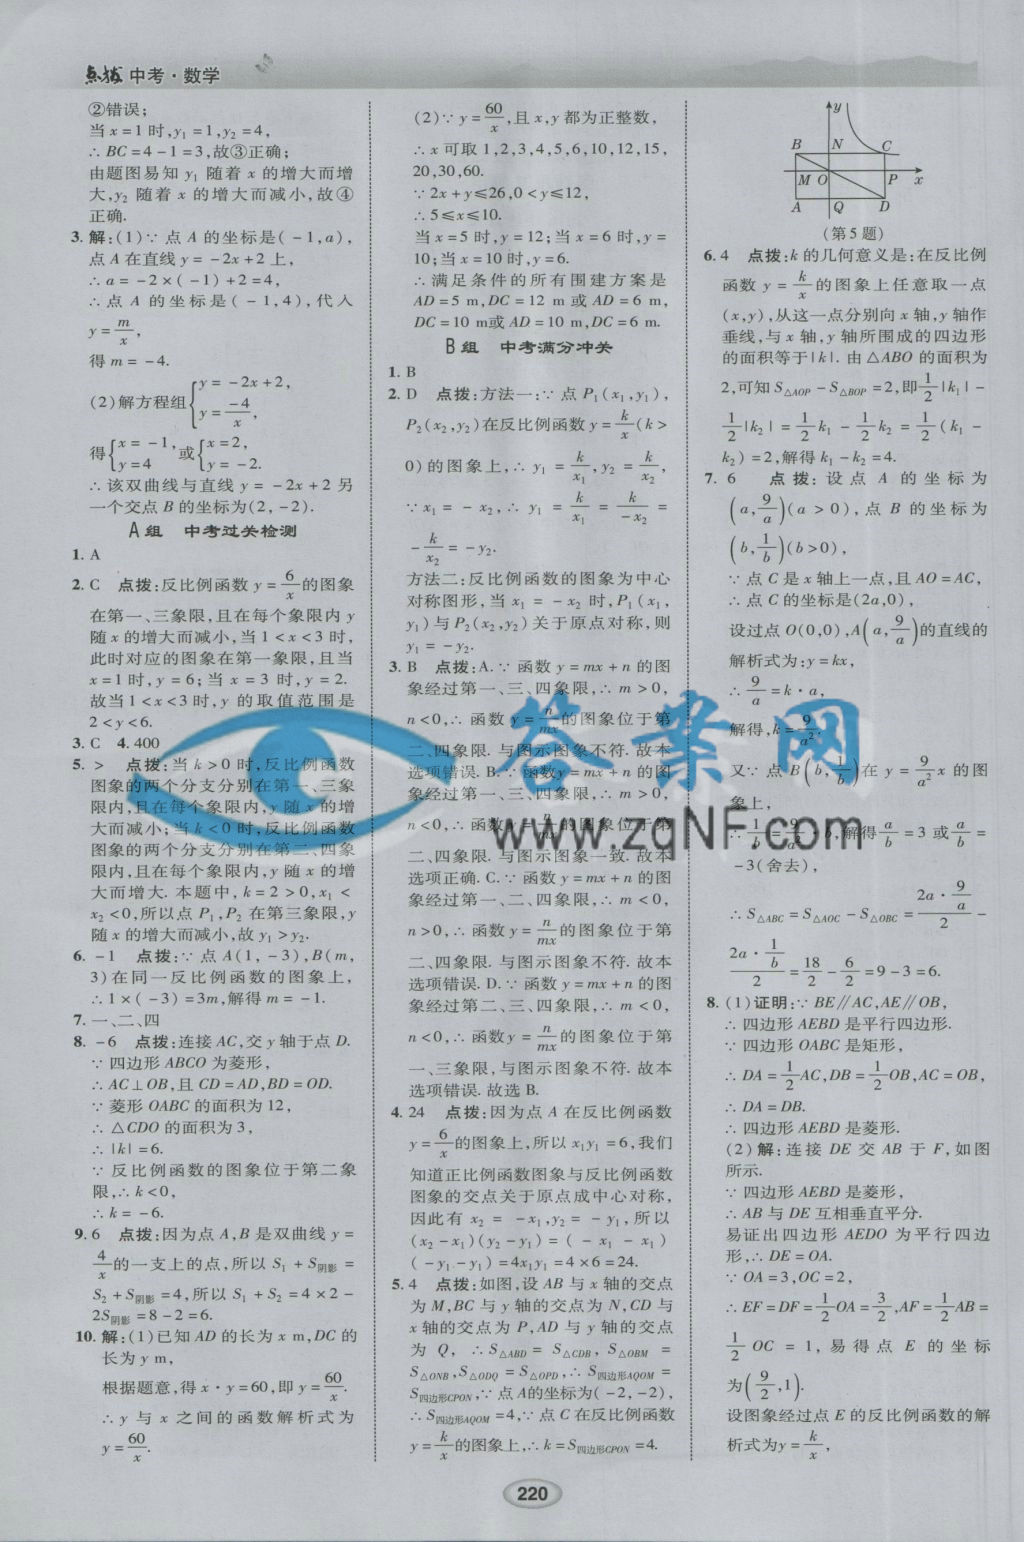 点拨 中考·数学
②错误;
当 x=1 时,y₁=1,y₂=4,
∴BC=4-1=3,故③正确;
由题图易知 y₁ 随着 x 的增大而增
大,y₂ 随着 x 的增大而减小,故④
正确.
3. 解:(1)∵点 A 的坐标是(-1,a),
点 A 在直线 y=-2x+2 上,
∴a=-2×(-1)+2=4,
∴点 A 的坐标是(-1,4),代入
y=m/x,
得 m=-4.
(2)解方程组{y=-2x+2,
y=-4/x,
得{x=-1,y=4 或{x=2,y=-2.
∴该双曲线与直线 y=-2x+2 另
一个交点 B 的坐标为(2,-2).
A组 中考过关检测
1. A
2. C 点拨:反比例函数 y=6/x的图象
在第一、三象限,且在每个象限内 y
随 x 的增大而减小,当 1<x<3 时,
此时对应的图象在第一象限,且当
x=1 时,y=6;当 x=3 时,y=2.
故当 1<x<3 时,y 的取值范围是
2<y<6.
3. C 4. 400
5. > 点拨:当 k>0 时,反比例函数
图象的两个分支分别在第一、三象
限内,且在每个象限内,y 随 x 的增
大而减小;当 k<0 时,反比例函数
图象的两个分支分别在第二、四象
限内,且在每个象限内,y 随 x 的增
大而增大. 本题中,k=2>0,x₁<
x₂<0,所以点 P₁,P₂ 在第三象限,y
随 x 的增大而减小,故 y₁>y₂.
6. -1 点拨:∵点 A(1,-3),B(m,
3)在同一反比例函数的图象上,
∴1×(-3)=3m,解得 m=-1.
7. 一、二、四
8. -6 点拨:连接 AC,交 y 轴于点 D.
∵四边形 ABCO 为菱形,
∴AC⊥OB,且 CD=AD,BD=OD.
∵菱形 OABC 的面积为 12,
∴△CDO 的面积为 3,
∴|k|=6.
∵反比例函数的图象位于第二象
限,∴k<0,
∴k=-6.
9. 6 点拨:因为点 A,B 是双曲线 y=
4/x的一支上的点,所以 S₁+S阴影=
S₂+S阴影=4,所以 S₁+S₂=4×2-
2S阴影=8-2=6.
10. 解:(1)已知 AD 的长为 x m,DC 的
长为 y m,
根据题意,得 x·y=60,即 y=60/x.
∴y 与 x 之间的函数解析式为
y=60/x.
(2)∵y=60/x,且 x,y 都为正整数,
∴x 可取 1,2,3,4,5,6,10,12,15,
20,30,60.
∵2x+y≤26,0<y≤12,
∴5≤x≤10.
当 x=5 时,y=12;当 x=6 时,y=
10;当 x=10 时,y=6.
∴满足条件的所有围建方案是
AD=5 m,DC=12 m 或 AD=6 m,
DC=10 m或 AD=10 m,DC=6 m.
B组 中考满分冲关
1. B
2. D 点拨:方法一:∵点 P₁(x₁,y₁),
P₂(x₂,y₂)在反比例函数 y=k/x(k>
0)的图象上,∴y₁=k/x₁,y₂=k/x₂,
∵x₁=-x₂,∴y₁=k/x₁=k/-x₂=
-k/x₂=-y₂.
方法二:反比例函数的图象为中心
对称图形,当 x₁=-x₂ 时,P₁(x₁,
y₁)与 P₂(x₂,y₂)关于原点对称,则
y₁=-y₂.
3. B 点拨:A.∵函数 y=mx+n 的图
象经过第一、三、四象限,∴m>0,
n<0,∴函数 y=n/mx的图象位于第
二、四象限. 与图示图象不符. 故本
选项错误. B.∵函数 y=mx+n 的图
象经过第一、三、四象限,∴m>0,
n<0,∴函数 y=n/mx的图象位于第
二、四象限. 与图示图象一致. 故本
选项正确. C.∵函数 y=mx+n 的图
象经过第一、二、四象限,∴m<0,
n>0,∴函数 y=n/mx的图象位于第
二、四象限. 与图示图象不符. 故本
选项错误. D.∵函数 y=mx+n 的图
象经过第二、三、四象限,∴m<0,
n<0,∴函数 y=n/mx的图象位于第
一、三象限. 与图示图象不符. 故本
选项错误. 故选 B.
4. 24 点拨:因为点 A 在反比例函数
y=6/x的图象上,所以 x₁y₁=6,我们
知道正比例函数图象与反比例函数
图象的交点关于原点成中心对称,
因此有 x₂=-x₁,y₂=-y₁,所以
(x₂-x₁)(y₂-y₁)=(-x₁-x₁)
(-y₁-y₁)=4x₁y₁=4×6=24.
5. 4 点拨:如图,设 AB 与 x 轴的交点
为 M,BC 与 y 轴的交点为 N,CD 与
x 轴的交点为 P,AD 与 y 轴的交点
为 Q,∴S△ABD=S△CDB,S△OBM=
S△ONB,S△ODQ=S△OPD,∴S四边形AQOM=
S四边形CPON,∵点 A的坐标为(-2,-2),
∴S四边形AQOM=4,∵点 C 在反比例函数
y=k/x的图象上,∴k=S四边形CPON=4.
y
B N C
M O P x
A Q D
(第 5 题)
6. 4 点拨:k 的几何意义是:在反比例
函数 y=k/x的图象上任意取一点
(x,y),从这一点分别向 x 轴,y 轴作
垂线,与 x 轴,y 轴所围成的四边形
的面积等于|k|. 由△ABO 的面积为
2,可知 S△AOP-S△BOP=2,即1/2|k₁|-
1/2|k₂|=1/2k₁-1/2k₂=1/2(k₁-
k₂)=2,解得 k₁-k₂=4.
7. 6 点拨:设点 A 的坐标为
(a,9/a)(a>0),点 B 的坐标为
(b,1/b)(b>0),
∵点 C 是 x 轴上一点,且 AO=AC,
∴点 C 的坐标是(2a,0),
设过点 O(0,0),A(a,9/a)的直线的
解析式为:y=kx,
∴9/a=k·a,
解得,k=9/a²,
又∵点 B(b,1/b)在 y=9/a²x 的图
象上,
∴1/b=9/a²·b,解得a/b=3 或a/b=
-3(舍去),
∴S△ABC=S△AOC-S△OBC=(2a·9/a)/2-
(2a·1/b)/2=18/2-6/2=9-3=6.
8. (1)证明:∵BE∥AC,AE∥OB,
∴四边形 AEBD 是平行四边形.
∵四边形 OABC 是矩形,
∴DA=1/2AC,DB=1/2OB,AC=OB,
∴DA=DB.
∴四边形 AEBD 是菱形.
(2)解:连接 DE 交 AB 于 F,如图
所示.
∵四边形 AEBD 是菱形,
∴AB 与 DE 互相垂直平分.
易证出四边形 AEDO 为平行四边
形,∴DE=OA.
∵OA=3,OC=2,
∴EF=DF=1/2OA=3/2,AF=1/2AB=
1/2OC=1,易得点 E 的坐标
为(9/2,1).
设图象经过点 E 的反比例函数的解
析式为y=k/x,
答案网
www.zqNF.com
220